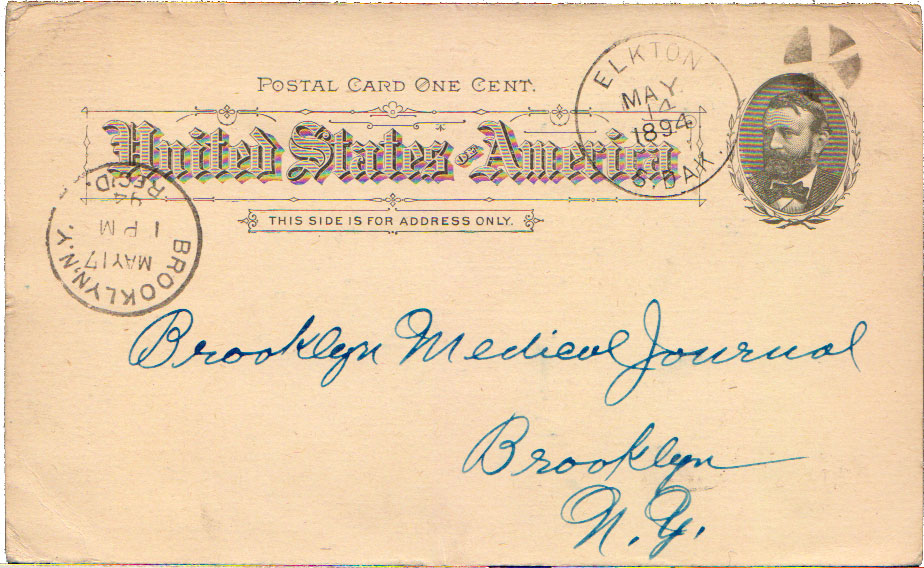 POSTAL CARD ONE CENT.
United States OF America
THIS SIDE IS FOR ADDRESS ONLY.
ELKTON
MAY
14
1894
S. DAK.
BROOKLYN, N.Y.
MAY 17
1 PM
94
REC'D.
Brooklyn Medical Journal
Brooklyn
N. Y.